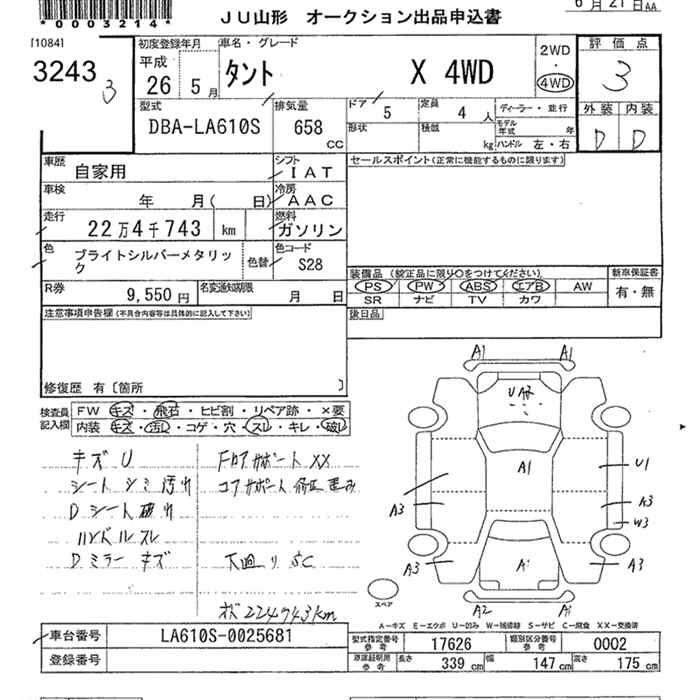 *0003214*
JU山形 オークション出品申込書
6月21日AA
[1084]
3243
3
初度登録年月
平成
26年 5月
車名・グレード
タント X 4WD
2WD
・
4WD
評価点
3
型式
DBA-LA610S
排気量
658
CC
ドア
5
定員
4人
形状
積載
kg
ディーラー・並行
モデル
年式
年
ハンドル 左・右
外装 内装
D D
車歴
自家用
シフト
IAT
車検
年 月( 日)
冷房
AAC
走行
22万4千743 km
燃料
ガソリン
色
ブライトシルバーメタリック
色替
色コード
S28
R券
9,550円
名変通知期限
月 日
セールスポイント(正常に機能するものに限ります)
装備品(純正品に限り○をつけてください)
PS PW ABS エアB AW
SR ナビ TV カワ
新車保証書
有・無
後日品
注意事項申告欄(不具合内容等は具体的に記入して下さい)
修復歴 有〔箇所 〕
検査員
記入欄
FW キズ・飛石・ヒビ割・リペア跡・×要
内装 キズ・汚れ・コゲ・穴・スレ・キレ・破れ
キズ U
シート シミ 汚れ
D シート 破れ
ハンドル スレ
D ミラー キズ
Fコアサポート XX
コアサポート 修正 歪み
下廻り SC
オド 224743km
A1 A1
UA2
A1
U1
A3
A3
W3
A3
A3
A2
スペア
A-キズ E-エクボ U-凹み W-補修跡 S-サビ C-腐食 XX-交換済
車台番号
LA610S-0025681
登録番号
型式指定番号
参考
17626
類別区分番号
参考
0002
車庫証明用
参考
長さ
339cm
幅
147cm
高さ
175cm